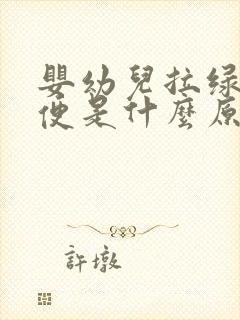 嬰幼兒拉绿
便是什麼原
許墩